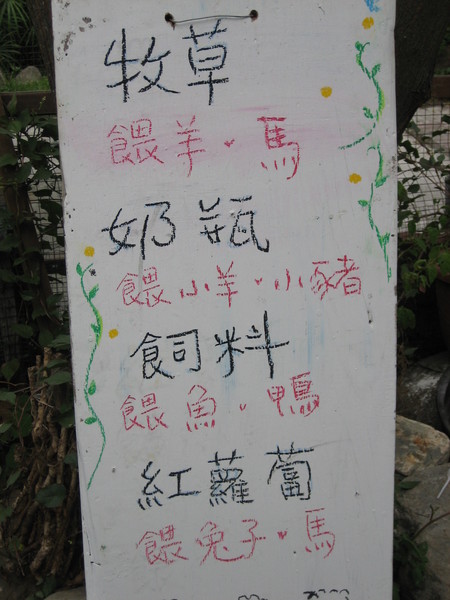 牧草
餵羊·馬
奶瓶
餵小羊·小豬
飼料
餵魚·鴨
紅蘿蔔
餵兔子·馬